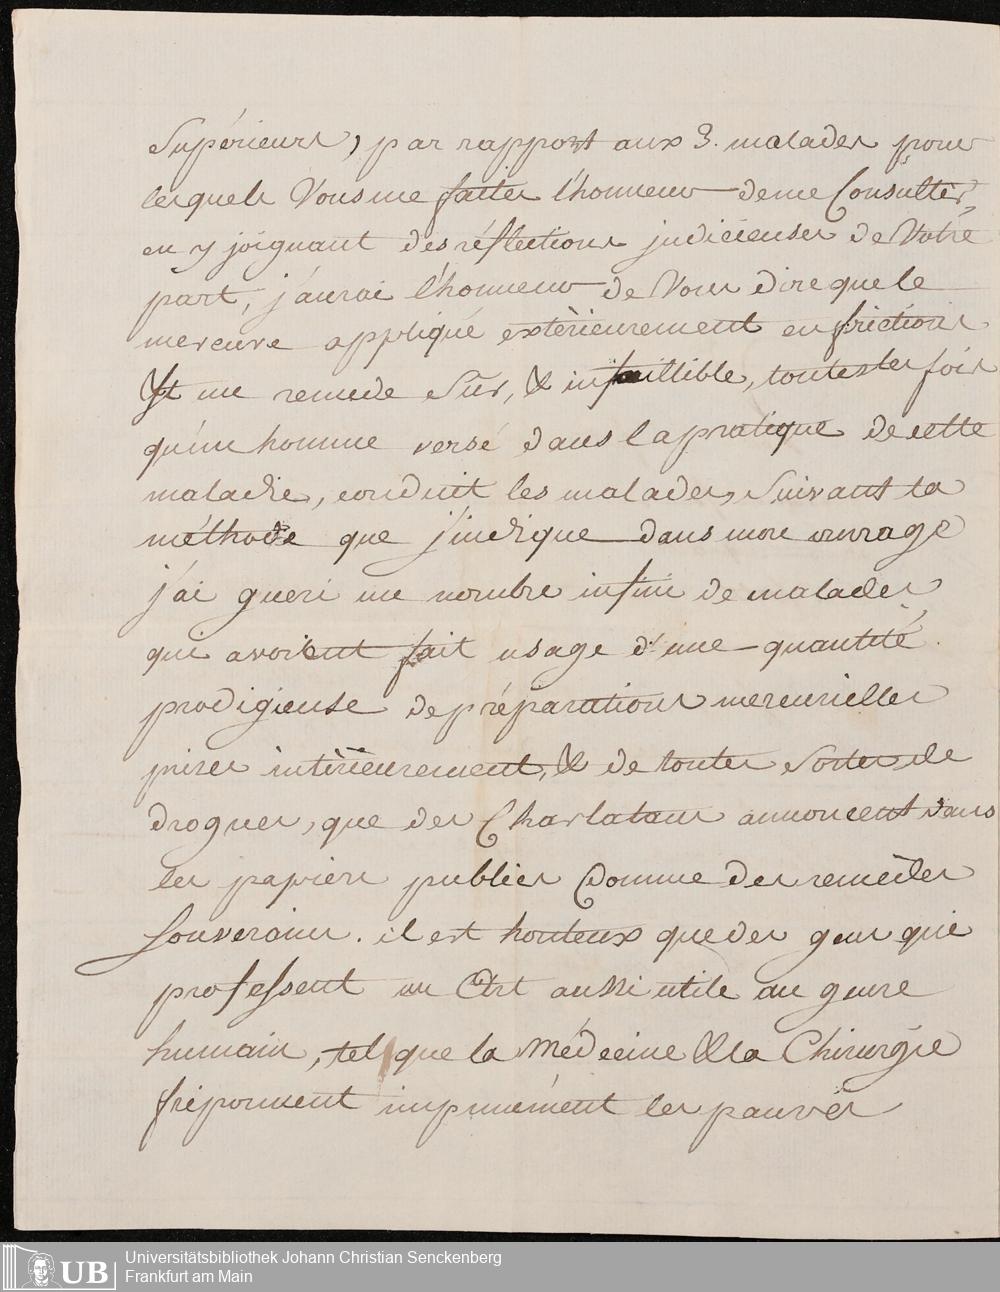 Supérieurs, par rapport aux 3. malades pour
lesquels Vous me faites l'honneur de me Consulter,
en y joignant des réflections judicieuses de Votre
part, j'aurai l'honneur de Vous dire que le
mercure appliqué extèrieurement en frictions
Est une remede Sûr, & infaillible, toutes les fois
qu'un homme versé dans la pratique de cette
maladie, conduit les malades, Suivant la
méthode que j'indique dans mon ouvrage
j'ai gueri une nombre infini de malades
qui avoient fait usage d'une quantité
prodigieuse de préparations mercurielles
prises intèrieurement, & de toutes Sortes de
drogues, que des Charlatans annoncent dans
les papiers publics Comme des remèdes
Souverains. il est honteux que des gens qui
professent un Art aussi utile au genre
humain, tel que la Médecine & la Chirurgie
friponnent impunément les pauvres
Universitätsbibliothek Johann Christian Senckenberg
Frankfurt am Main
UB